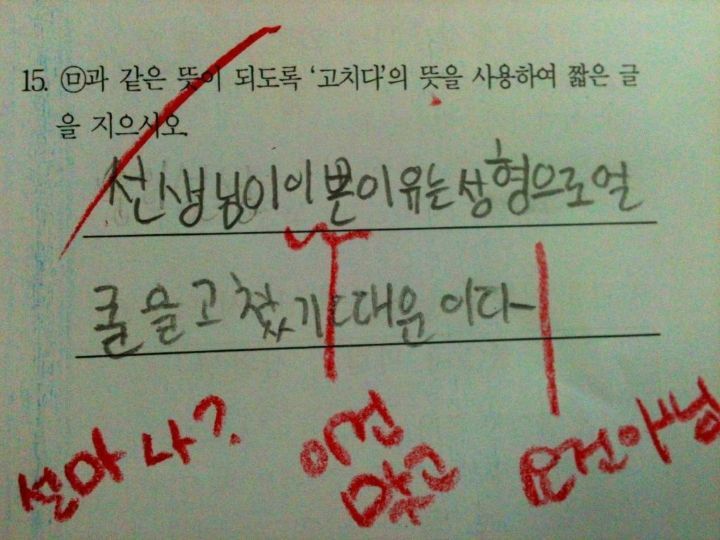 15. ㉤과 같은 뜻이 되도록 '고치다'의 뜻을 사용하여 짧은 글
을 지으시오.
선생님이 이쁜이유는 성형으로 얼
굴을 고쳤기때문 이다
설마 나?
이건
맞고
요건아님